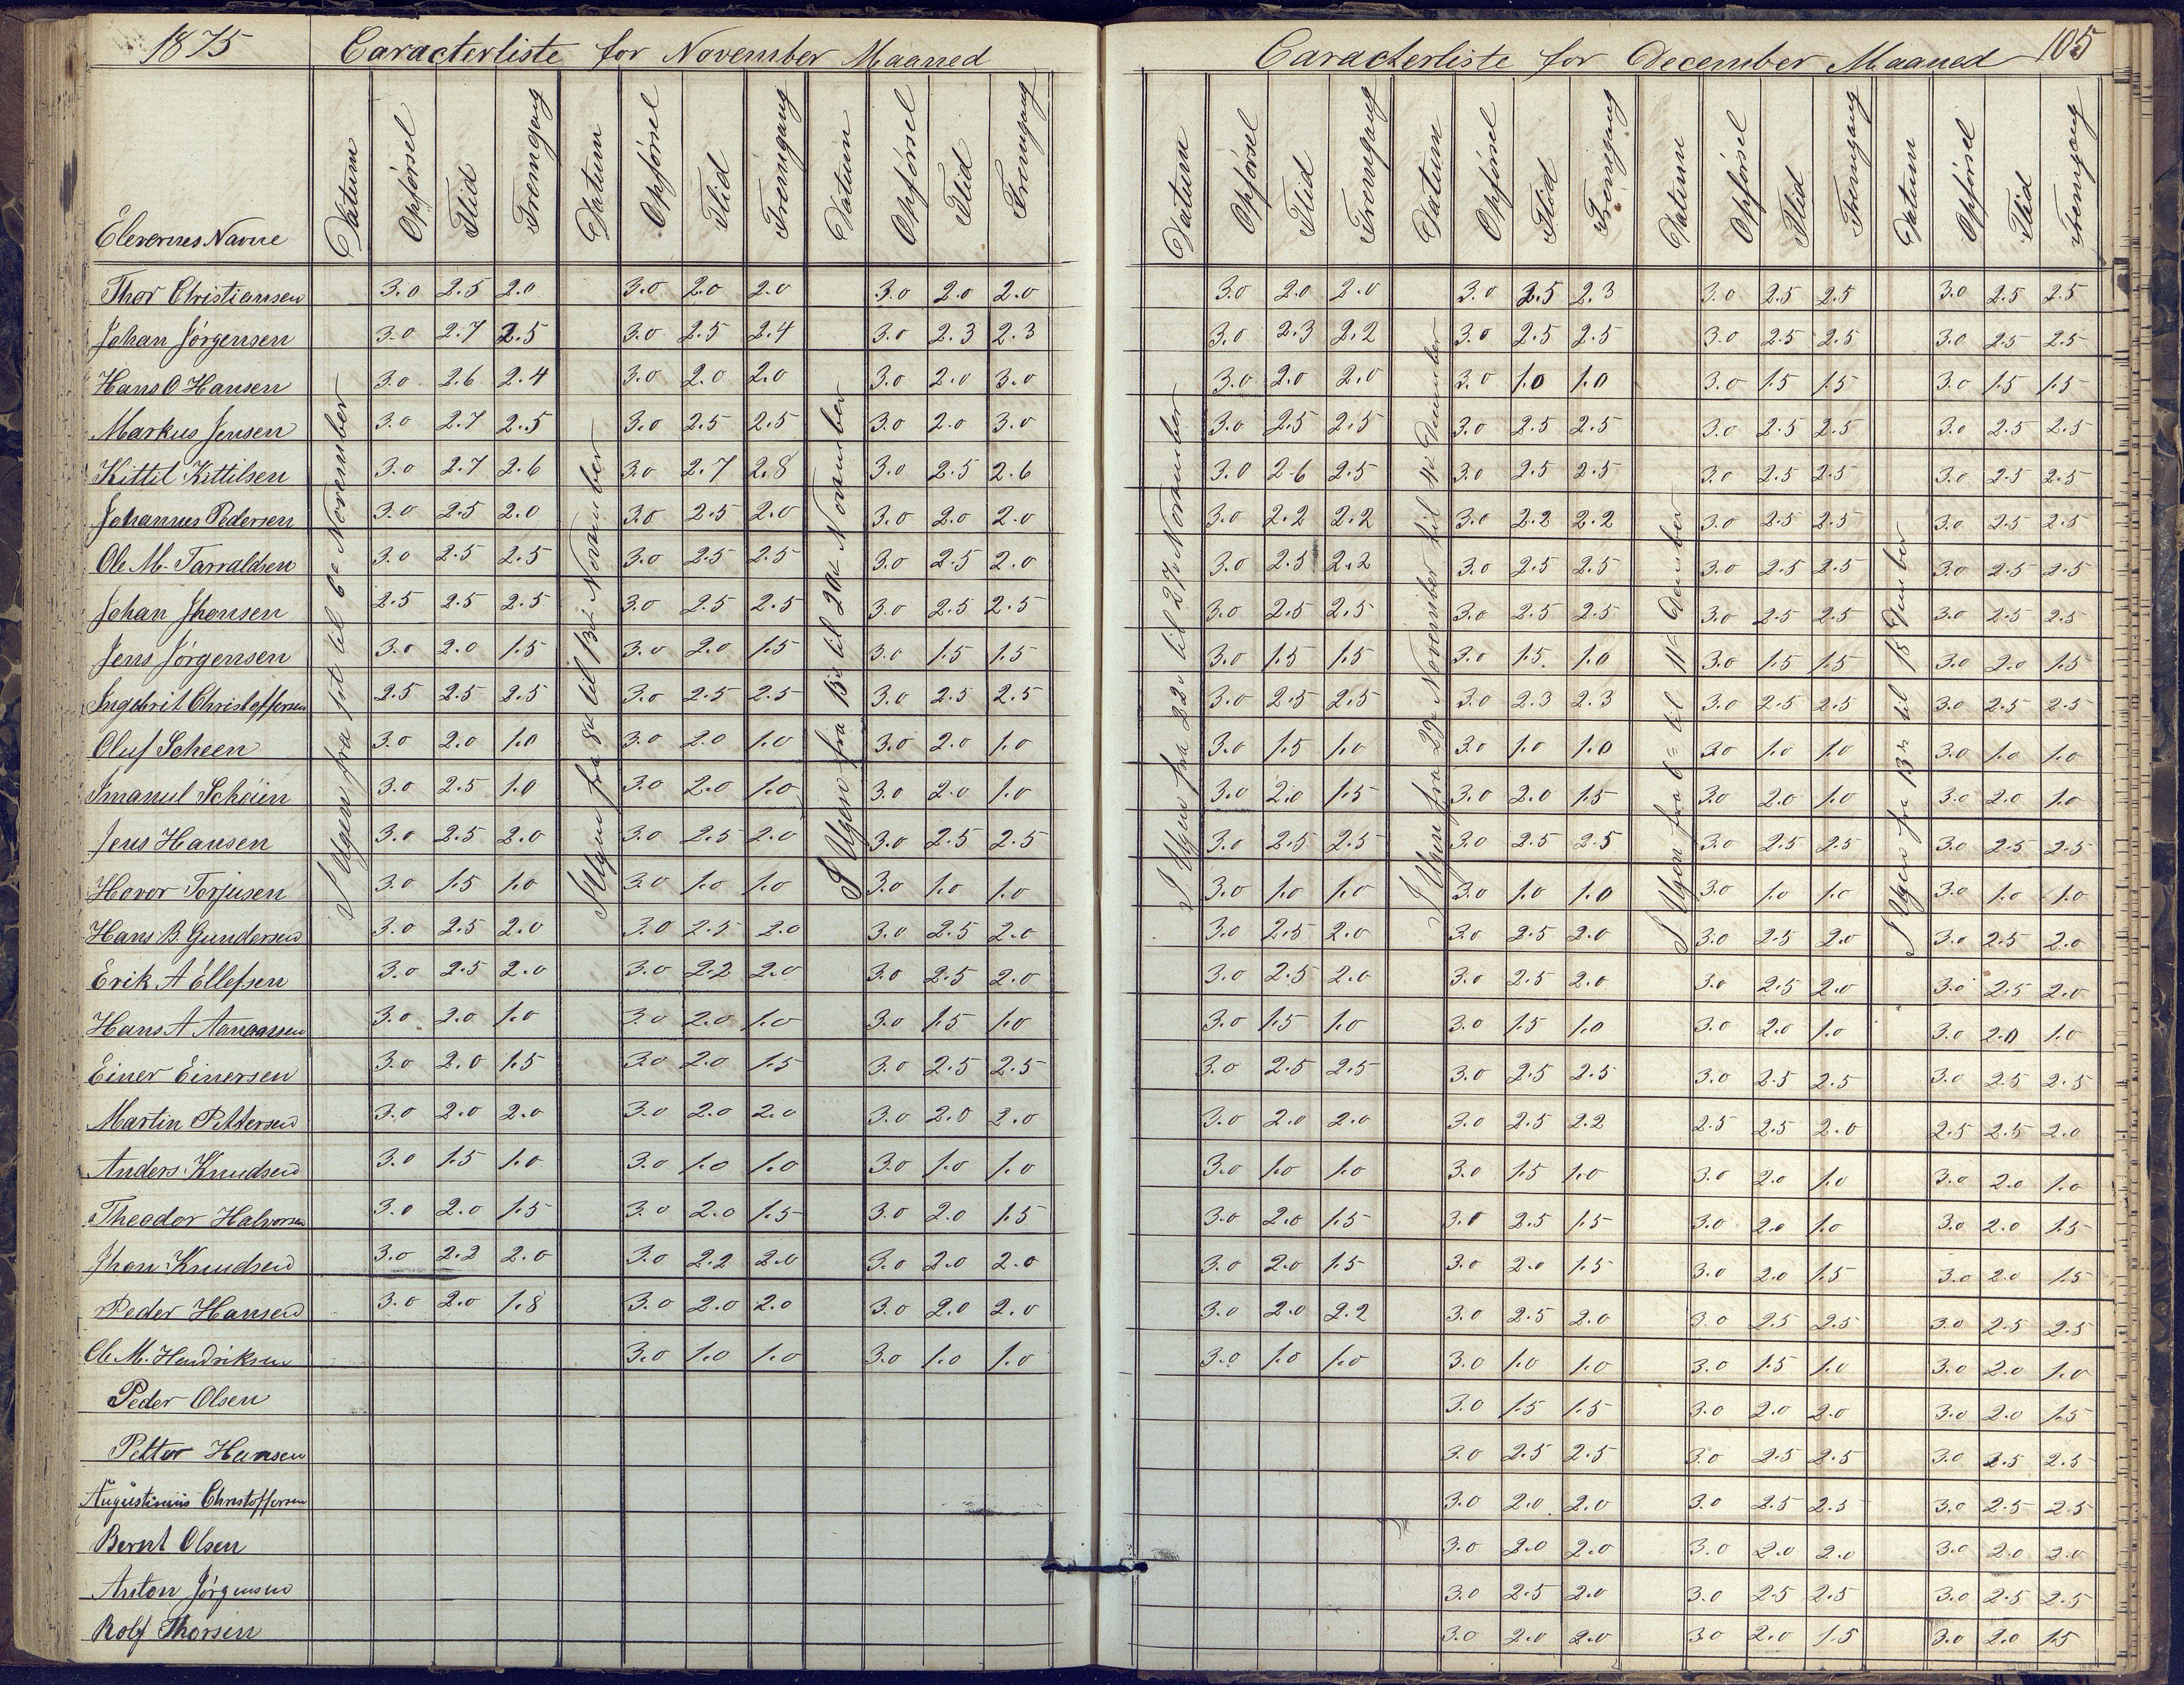 1875 Caracterliste for November Maaned
Caracterliste for December Maaned 105
Elevernes Navne Datum Opførsel Flid Fremgang Datum Opførsel Flid Fremgang Datum Opførsel Flid Fremgang Datum Opførsel Flid Fremgang Datum Opførsel Flid Fremgang Datum Opførsel Flid Fremgang Datum Opførsel Flid Fremgang
I Ugen fra 1st til 6te November
I Ugen fra 8de til 13de November
I Ugen fra 15de til 20de November
I Ugen fra 22de til 27de November
I Ugen fra 29de November til 4de December
I Ugen fra 6= til 11te December
I Ugen fra 13de til 18 December
Thor Christiansen 3.0 2.5 2.0 3.0 2.0 2.0 3.0 2.0 2.0 3.0 2.0 2.0 3.0 2.5 2.3 3.0 2.5 2.5 3.0 2.5 2.5
Johan Jørgensen 3.0 2.7 2.5 3.0 2.5 2.4 3.0 2.3 2.3 3.0 2.3 2.2 3.0 2.5 2.5 3.0 2.5 2.5 3.0 2.5 2.5
Hans O Hansen 3.0 2.6 2.4 3.0 2.0 2.0 3.0 2.0 3.0 3.0 2.0 2.0 3.0 1.0 1.0 3.0 1.5 1.5 3.0 1.5 1.5
Markus Jensen 3.0 2.7 2.5 3.0 2.5 2.5 3.0 2.0 3.0 3.0 2.5 2.5 3.0 2.5 2.5 3.0 2.5 2.5 3.0 2.5 2.5
Kittil Kittilsen 3.0 2.7 2.6 3.0 2.7 2.8 3.0 2.5 2.6 3.0 2.6 2.5 3.0 2.5 2.5 3.0 2.5 2.5 3.0 2.5 2.5
Johannes Pedersen 3.0 2.5 2.0 3.0 2.5 2.0 3.0 2.0 2.0 3.0 2.2 2.2 3.0 2.2 2.2 3.0 2.5 2.5 3.0 2.5 2.5
Ole M. Tarraldsen 3.0 2.5 2.5 3.0 2.5 2.5 3.0 2.5 2.0 3.0 2.5 2.2 3.0 2.5 2.5 3.0 2.5 2.5 3.0 2.5 2.5
Johan Jhonsen 2.5 2.5 2.5 3.0 2.5 2.5 3.0 2.5 2.5 3.0 2.5 2.5 3.0 2.5 2.5 3.0 2.5 2.5 3.0 2.5 2.5
Jens Jørgensen 3.0 2.0 1.5 3.0 2.0 1.5 3.0 1.5 1.5 3.0 1.5 1.5 3.0 1.5 1.0 3.0 1.5 1.5 3.0 2.0 1.5
Ingebrit Christoffersen 2.5 2.5 2.5 3.0 2.5 2.5 3.0 2.5 2.5 3.0 2.5 2.5 3.0 2.3 2.3 3.0 2.5 2.5 3.0 2.5 2.5
Oluf Scheen 3.0 2.0 1.0 3.0 2.0 1.0 3.0 2.0 1.0 3.0 1.5 1.0 3.0 1.0 1.0 3.0 1.0 1.0 3.0 1.0 1.0
Imanul Schøien 3.0 2.5 1.0 3.0 2.0 1.0 3.0 2.0 1.0 3.0 2.0 1.5 3.0 2.0 1.5 3.0 2.0 1.0 3.0 2.0 1.0
Jens Hansen 3.0 2.5 2.0 3.0 2.5 2.0 3.0 2.5 2.5 3.0 2.5 2.5 3.0 2.5 2.5 3.0 2.5 2.5 3.0 2.5 2.5
Hovor Torjusen 3.0 1.5 1.0 3.0 1.0 1.0 3.0 1.0 1.0 3.0 1.0 1.0 3.0 1.0 1.0 3.0 1.0 1.0 3.0 1.0 1.0
Hans B. Gundersen 3.0 2.5 2.0 3.0 2.5 2.0 3.0 2.5 2.0 3.0 2.5 2.0 3.0 2.5 2.0 3.0 2.5 2.0 3.0 2.5 2.0
Erik A Ellefsen 3.0 2.5 2.0 3.0 2.2 2.0 3.0 2.5 2.0 3.0 2.5 2.0 3.0 2.5 2.0 3.0 2.5 2.0 3.0 2.5 2.0
Hans A 3.0 2.0 1.0 3.0 2.0 1.0 3.0 1.5 1.0 3.0 1.5 1.0 3.0 1.5 1.0 3.0 2.0 1.0 3.0 2.0 1.0
Einer Einersen 3.0 2.0 1.5 3.0 2.0 1.5 3.0 2.5 2.5 3.0 2.5 2.5 3.0 2.5 2.5 3.0 2.5 2.5 3.0 2.5 2.5
Martin Pettersen 3.0 2.0 2.0 3.0 2.0 2.0 3.0 2.0 2.0 3.0 2.0 2.0 3.0 2.5 2.2 2.5 2.5 2.0 2.5 2.5 2.0
Anders Knudsen 3.0 1.5 1.0 3.0 1.0 1.0 3.0 1.0 1.0 3.0 1.0 1.0 3.0 1.5 1.0 3.0 2.0 1.0 3.0 2.0 1.0
Theodor Halvorsen 3.0 2.0 1.5 3.0 2.0 1.5 3.0 2.0 1.5 3.0 2.0 1.5 3.0 2.5 1.5 3.0 2.0 1.0 3.0 2.0 1.5
Jhan Knudsen 3.0 2.2 2.0 3.0 2.2 2.0 3.0 2.0 2.0 3.0 2.0 1.5 3.0 2.0 1.5 3.0 2.0 1.5 3.0 2.0 1.5
Peder Hansen 3.0 2.0 1.8 3.0 2.0 2.0 3.0 2.0 2.0 3.0 2.0 2.2 3.0 2.5 2.0 3.0 2.5 2.5 3.0 2.5 2.5
Ole M. Hendriksen 3.0 1.0 1.0 3.0 1.0 1.0 3.0 1.0 1.0 3.0 1.0 1.0 3.0 1.5 1.0 3.0 2.0 1.0
Peder Olsen 3.0 1.5 1.5 3.0 2.0 2.0 3.0 2.0 1.5
Petter Hansen 3.0 2.5 2.5 3.0 2.5 2.5 3.0 2.5 2.5
Augustinius Christoffersen 3.0 2.0 2.0 3.0 2.5 2.5 3.0 2.5 2.5
Bernt Olsen 3.0 2.0 2.0 3.0 2.0 2.0 3.0 2.0 2.0
Anton Jørgensen 3.0 2.5 2.0 3.0 2.5 2.5 3.0 2.5 2.5
Rolf Thorsen 3.0 2.0 2.0 3.0 2.0 1.5 3.0 2.0 1.5